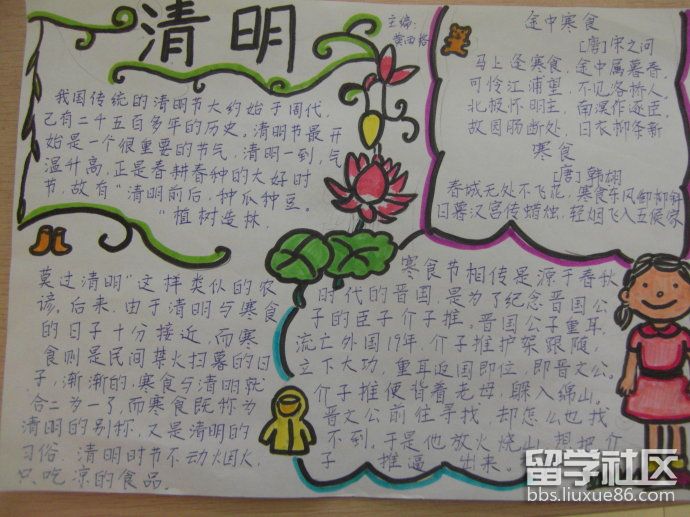 清明
主编：
我国传统的清明节大约始于周代，
已有二千五百多年的历史。清明节最开
始是一个很重要的节气，清明一到，气
温升高，正是春耕春种的大好时
节，故有“清明前后，种瓜种豆。
“植树造林，
莫过清明”这样类似的农
谚。后来，由于清明与寒食
的日子十分接近，而寒
食则是民间禁火扫墓的日
子，渐渐的，寒食与清明就
合二为一了，而寒食既称为
清明的别称，又是清明的
习俗，清明时节不动烟火，
只吃凉的食品。
途中寒食
[唐]宋之问
马上逢寒食，途中属暮春。
可怜江浦望，不见洛桥人。
北极怀明主，南溟作逐臣。
故园肠断处，日衣柳条新
寒食
[唐]韩翃
春城无处不飞花，寒食东风御柳斜
日暮汉宫传蜡烛，轻烟飞入五侯家
寒食节相传是源于春秋
时代的晋国，是为了纪念晋国公
子的臣子介子推。晋国公子重耳，
流亡外国19年，介子推护驾跟随，
立下大功，重耳返国即位，即晋文公。
介子推便背着老母，躲入绵山。
晋文公前往寻找，却怎么也找
不到，于是他放火烧山，想把介
子推逼出来。
留学社区
bbs.liuxue86.com